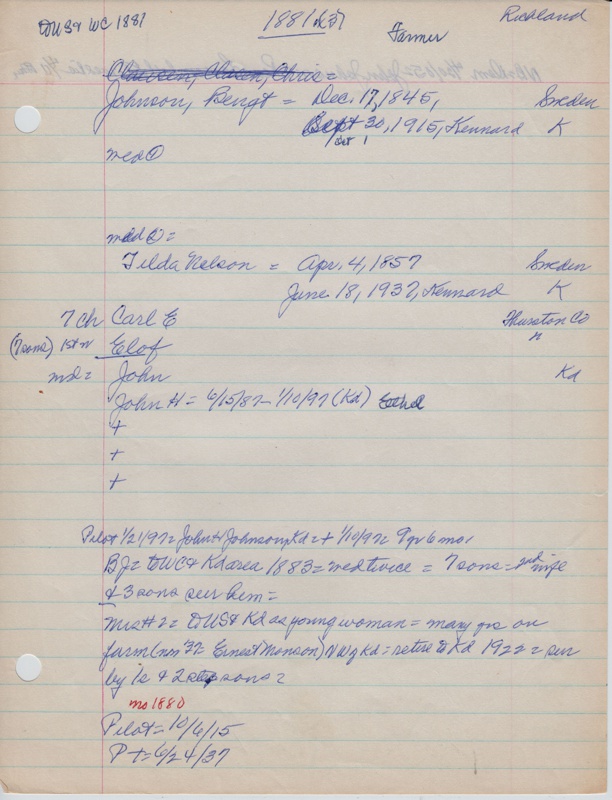 to US & WC 1881
1881
Farmer
Richland
Clausen, Chris =
Johnson, Bengt = Dec. 17, 1845, Sweden
Sept 30, 1915, Kennard K
Oct 1
md ①
mdd ② =
Tilda Nelson = Apr. 4, 1857 Sweden
June 18, 1937, Kennard K
7 ch Carl E Thurston Co
(7 sons) 1st w Elof
md = John Kd
John H = 6/15/87 - 1/10/97 (Kd)
+
+
+
Pilot 1/21/97 = John H Johnson, Kd = + 1/10/97 9 yr 6 mo
BJ = to WC & Kd area 1883 = wed twice = 7 sons = 2nd wife
& 3 sons surv him =
Mrs # 2 = to US & Kd as young woman = many yrs on
farm (nm '37 = Ernest Monson) NW of Kd = retire to Kd 1922 = surv
by 1s & 2 stepsons =
ms 1880
Pilot = 10/6/15
P T = 6/24/37